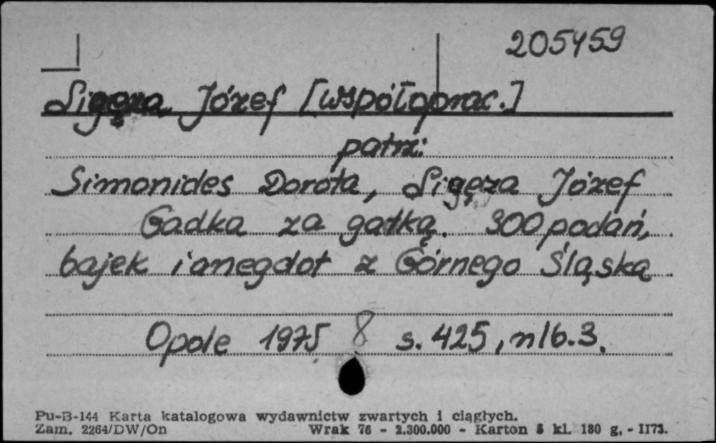 205459
Ligęza Józef [współoprac.]
patrz:
Simonides Dorota, Ligęza Józef
Gadka za gadką. 300 podań,
bajek i anegdot z Górnego Śląska
Opole 1975 8 s. 425, nlb. 3.
Pu-B-144 Karta katalogowa wydawnictw zwartych i ciągłych.
Zam. 2264/DW/On Wrak 76 - 2.300.000 - Karton 5 kl. 180 g. - II73.